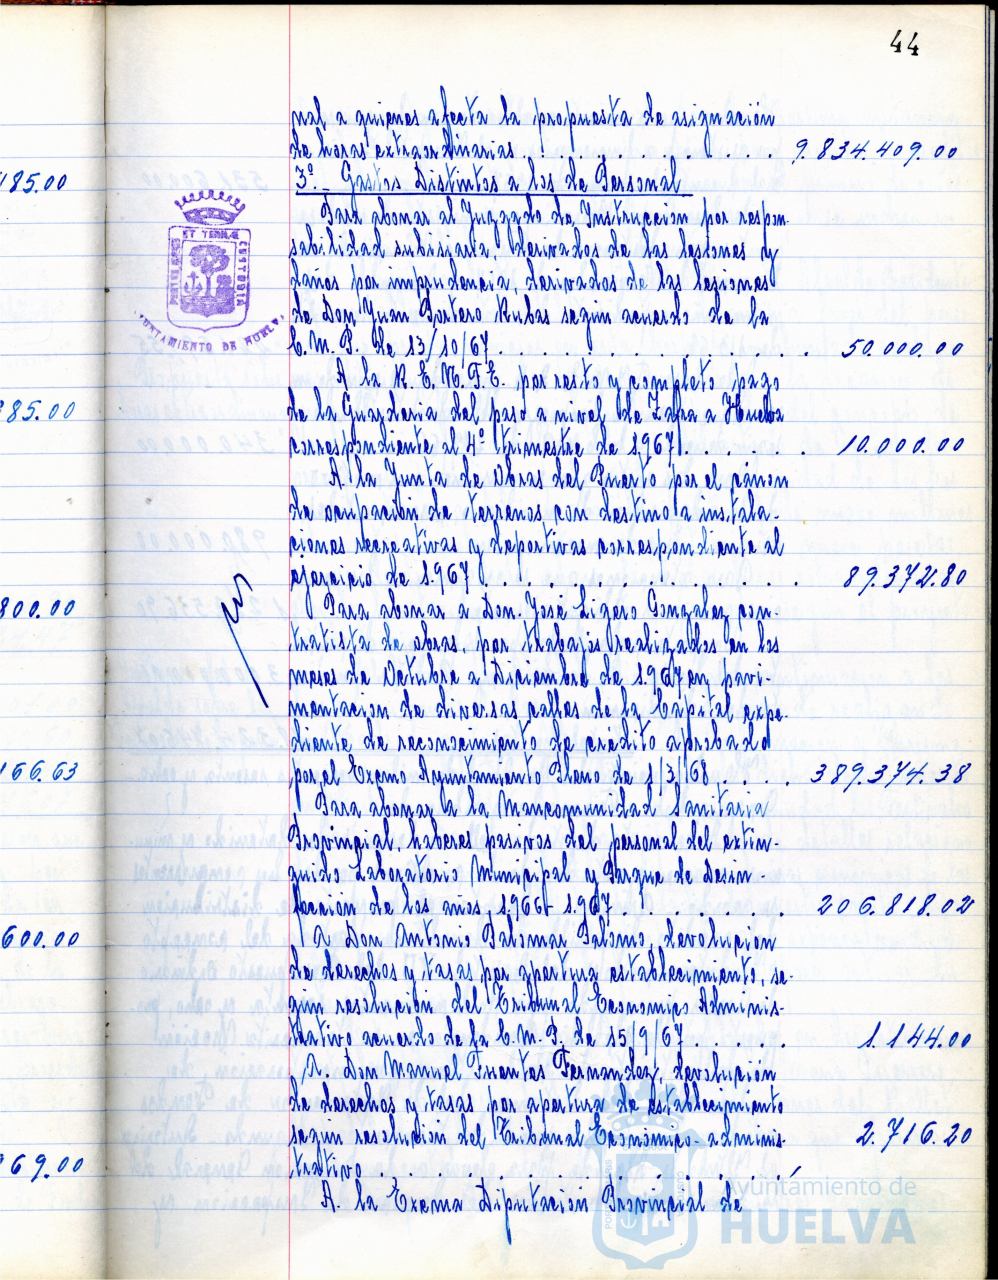 44
nal a quienes afecta la propuesta de asignación
de horas extraordinarias . . . . . . . . . 9.834.409.00
3º.- Gastos Distintos a los de Personal
185.00
Para abonar al Juzgado de Instrucción por respon-
sabilidad subisiaria, derivados de las lesiones y
daños por imprudencia, derivados de las lesiones
de Don Juan Portero Rubas según acuerdo de la
C.M.P. de 13/10/67 . . . . . . . . . 50.000.00
PORTUS MARIS ET TERRAE CUSTODIA
AYUNTAMIENTO DE HUELVA
A la R.E.N.F.E. por resto y completo pago
de la Guarderia del paso a nivel de Zafra a Huelva
85.00
correspondiente al 4º trimestre de 1.967 . . . . . . 10.000.00
A la Junta de Obras del Puerto por el cánon
de ocupación de terrenos con destino a instala-
ciones recreativas y deportivas correspondiente al
ejercicio de 1.967 . . . . . . . . . 89.372.80
800.00
Para abonar a Don José Ligero Gonzalez con-
tratista de obras, por trabajos realizados en los
meses de Octubre a Diciembre de 1.967 en pavi-
mentacion de diversas calles de la Capital expe-
diente de reconocimiento de crédito aprobado
166.63
por el Excmo Ayuntamiento Pleno de 1/3/68 . . . . 389.374.38
Para abonar a la Mancomunidad Sanitaria
Provincial, haberes pasivos del personal del extin-
guido Laboratorio Municipal y Parque de Desin-
fección de los años, 1.966 - 1.967 . . . . . . . 206.818.02
600.00
A Don Antonio Palomar Palomo, devolución
de derechos y tasas por apertura establecimiento, se-
gún resolución del Tribunal Economico Adminis-
trativo acuerdo de la C.M.P. de 15/9/67 . . . . 1.144.00
A. Don Manuel Fuentes Fernandez, devolución
de derechos y tasas por apertura de establecimiento
según resolución del Tribunal Económico-adminis- 2.716.20
trativo . . . . . . . . .
69.00
A. la Excma Diputación Provincial de
Ayuntamiento de
HUELVA